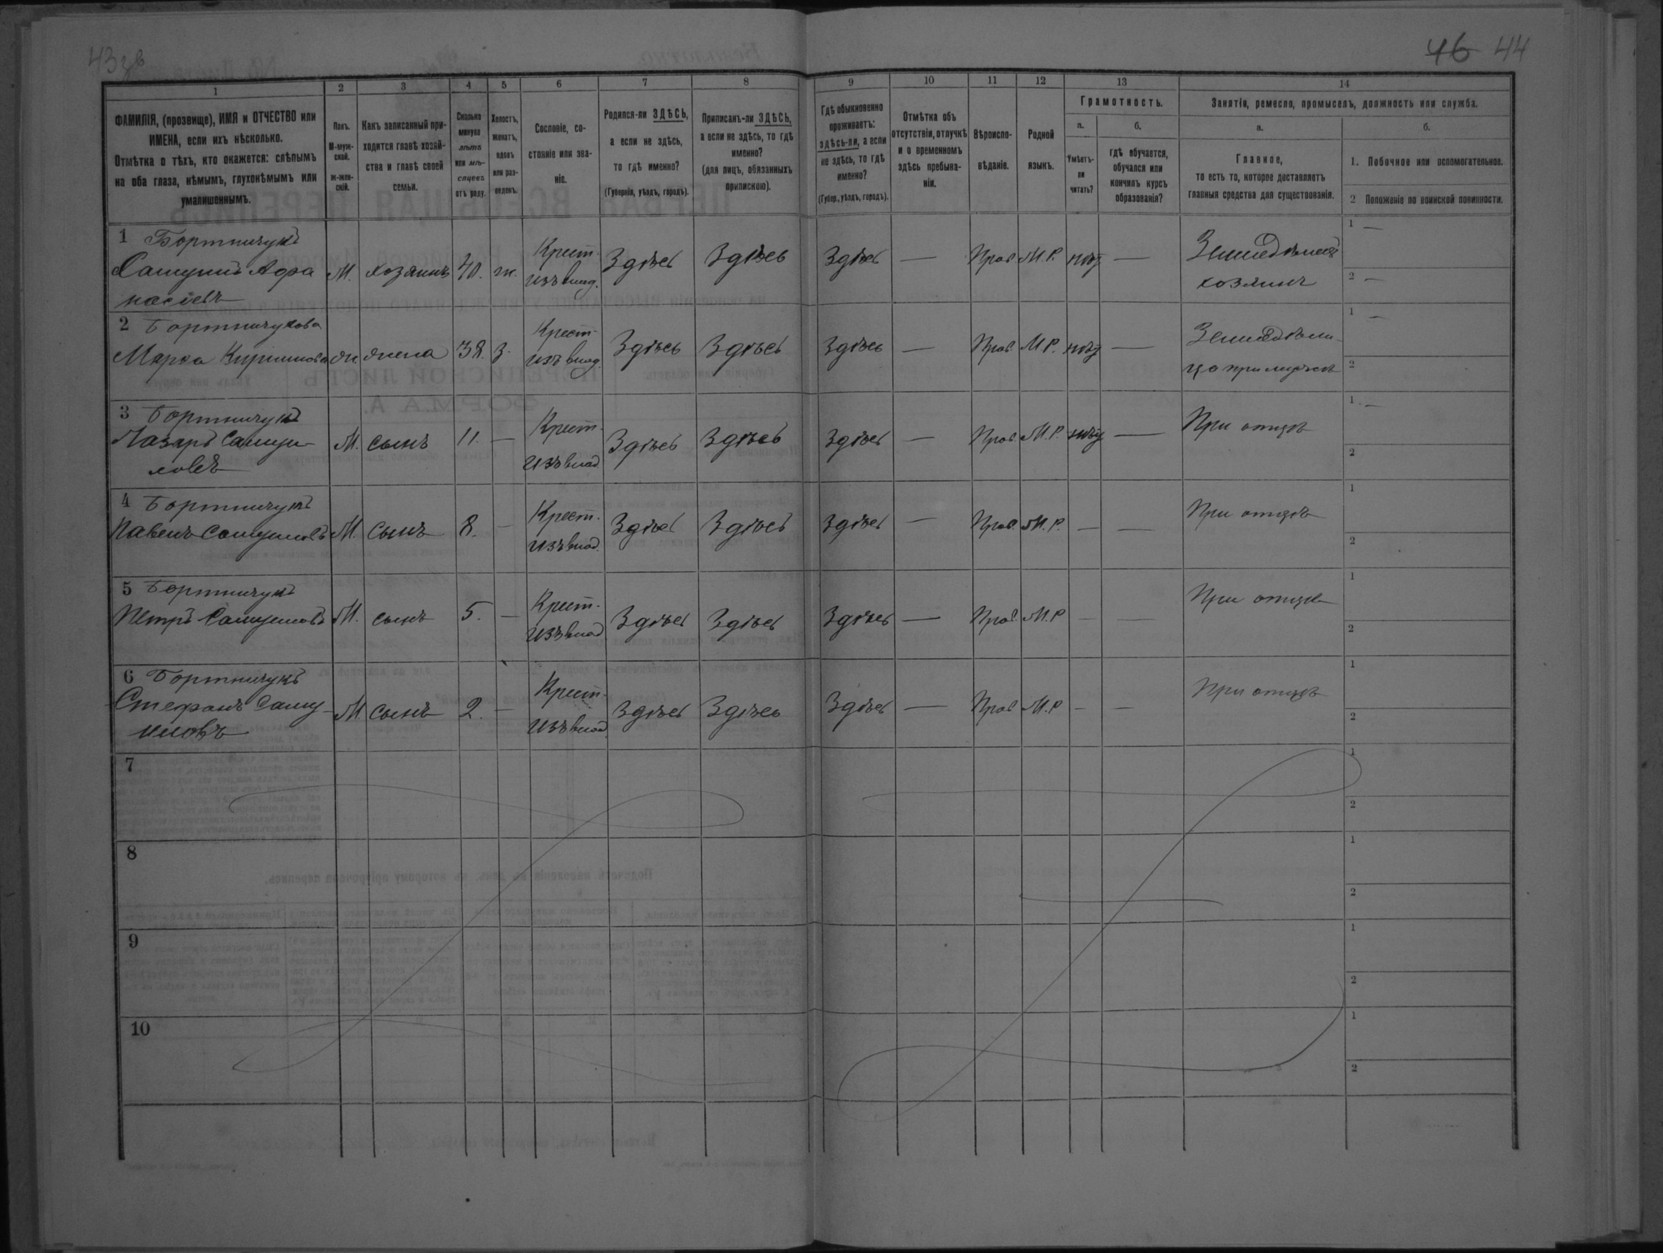 43 зв
46 44
1
2
3
4
5
6
7
8
9
10
11
12
13
14
ФАМИЛІЯ, (прозвище), ИМЯ и ОТЧЕСТВО или
ИМЕНА, если ихъ нѣсколько.
Отмѣтка о тѣхъ, кто окажется: слѣпымъ
на оба глаза, нѣмымъ, глухонѣмымъ или
умалишеннымъ.
Полъ.
М-муж-
ской.
Ж-жен-
скій.
Какъ записанный при-
ходится главѣ хозяй-
ства и главѣ своей
семьи.
Сколько
минуло
лѣтъ
или мѣ-
сяцевъ
отъ роду.
Холостъ,
женатъ,
вдовъ
или раз-
веденъ.
Сословіе, со-
стояніе или зва-
ніе.
Родился-ли ЗДѢСЬ,
а если не здѣсь,
то гдѣ именно?
(Губернія, уѣздъ, городъ).
Приписанъ-ли ЗДѢСЬ,
а если не здѣсь, то гдѣ
именно?
(для лицъ, обязанныхъ
припискою).
Гдѣ обыкновенно
проживаетъ:
здѣсь-ли, а если
не здѣсь, то гдѣ
именно?
(Губер., уѣздъ, городъ).
Отмѣтка объ
отсутствіи, отлучкѣ
и о временномъ
здѣсь пребыва-
ніи.
Вѣроиспо-
вѣданіе.
Родной
языкъ.
Грамотность.
а.
б.
Умѣетъ-
ли
читать?
гдѣ обучается,
обучался или
кончилъ курсъ
образованія?
Занятіе, ремесло, промыселъ, должность или служба.
а.
б.
Главное,
то есть то, которое доставляетъ
главныя средства для существованія.
1. Побочное или вспомогательное.
2 Положеніе по воинской повинности.
1 Бортничукъ
Самуилъ Афа
насіевъ
М. хозяинъ 40. ж. Крест. изъ влад. Здѣсь Здѣсь Здѣсь — Прав М.Р. нѣт — Земледѣлецъ
хозяинъ
1 —
2 —
2 Бортничукова
Марка Кирилова
жн жена 38. з. Крест. изъ влад. Здѣсь Здѣсь Здѣсь — Прав М.Р. нѣт —
1 —
2
3 Бортничукъ
Лазарь Самуи-
ловъ
М. сынъ 11. — Крест. изъ влад Здѣсь Здѣсь Здѣсь — Прав М.Р. нѣт — При отцѣ
1 —
2
4 Бортничукъ
Павелъ Самуиловъ
М. сынъ 8. — Крест. изъ влад. Здѣсь Здѣсь Здѣсь — Прав М.Р. — — При отцѣ
1
2
5 Бортничукъ
Петръ Самуиловъ
М. сынъ 5. — Крест. изъ влад Здѣсь Здѣсь Здѣсь — Прав М.Р — — При отцѣ
1
2
6 Бортничукъ
Стефанъ Саму-
иловъ
М сынъ 2. — Крест. изъ влад Здѣсь Здѣсь Здѣсь — Прав М.Р — — При отцѣ
1
2
7
1
2
8
1
2
9
1
2
10
1
2